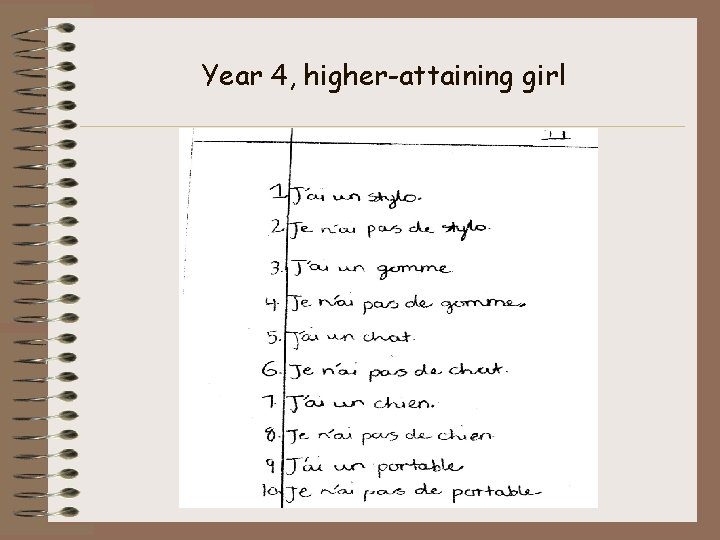 Year 4, higher-attaining girl
11
1. J'ai un stylo.
2. Je n'ai pas de stylo.
3. J'ai un gomme
4. Je n'ai pas de gomme.
5. J'ai un chat.
6. Je n'ai pas de chat.
7. J'ai un chien.
8. Je n'ai pas de chien
9. J'ai un portable
10. Je n'ai pas de portable